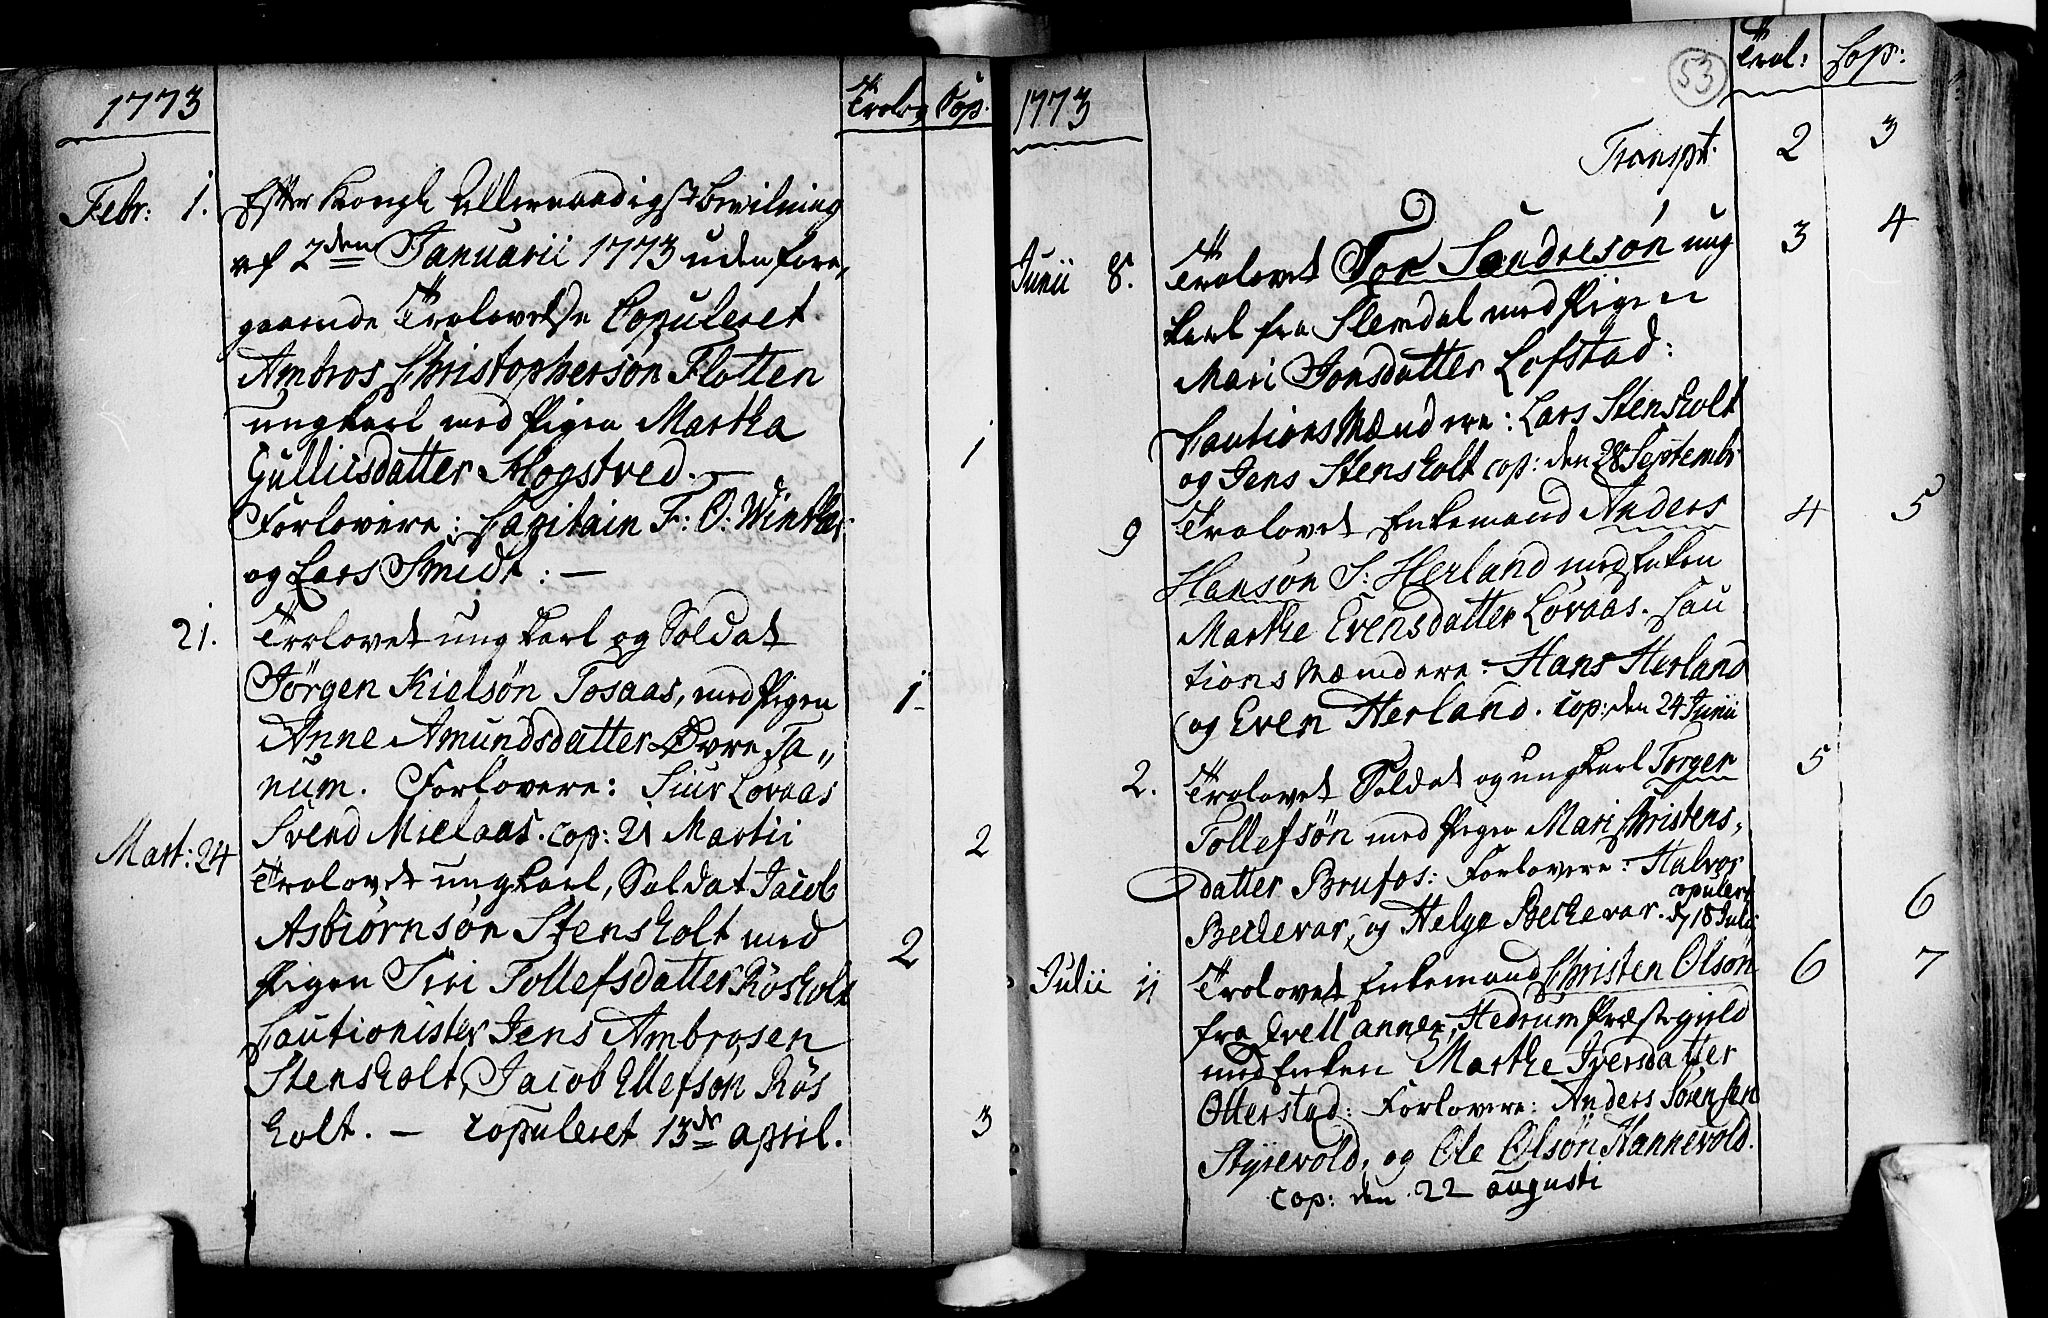 1773
Trolov Cop:
Febr: 1. Efter Kongl: Allernaadigst bevilning
af 2den Januarii 1773 uden fore,,
gaaende Trolovelse Copuleret
Ambros Christophersøn Flotten
ungkarl med Pigen Martha
Gullicsdatter Mogstved. — 1
Forlovere: Capitain F: O: Winther
og Lars Smidt: —
21. Trolovet ungkarl og Soldat
Jörgen Kielsøn Tosaas, med Pigen 1
Anne Amundsdatter Øvre Ta,,
num. Forlovere: Siur Lovaas
Svend Mielaas. cop: 21 Martii 2
Mart: 24 Trolovet ungkarl, Soldat Jacob
Asbiørnsøn Stensholt med 2
Pigen Siri Tollefsdatter Røsholt
Cautionister Jens Ambrosen
Stensholt, Jacob Ellefsøn Røs
holt. — copuleret 13de april. 3
1773
53
Trol: Cop:
Transpt. 2 3
Junii 8. Trolovet Tor Sandresøn ung 3 4
karl fra Slemdal med Pigen
Mari Jonsdatter Lofstad:
Cautions Mændere: Lars Stensholt
og Jens Stensholt cop: den 28 Septembr
9 Trolovet Enkemand Anders 4 5
Hansøn S: Herland med Enken
Marthe Evensdatter Lovaas. Cau
tions Mændere: Hans Herland
og Even Herland. cop: den 24 Junii
2. Trolovet Soldat og ungkarl Torger 5
Tollefsøn med Pigen Mari Christens,
datter Brufos: Forlovere: Halvor
Beckevar, og Helge Beckevar. copuleret d 18 Julii 6
Julii 11 Trolovet Enkemand Christen Olsøn 6 7
fra Qvell annex, Hedrum Præstegield
med Enken Marthe Iversdatter
Otterstad: Forlovere: Anders Sörensen
Styrevold, og Ole Olsøn Hannevold.
cop: den 22 augusti